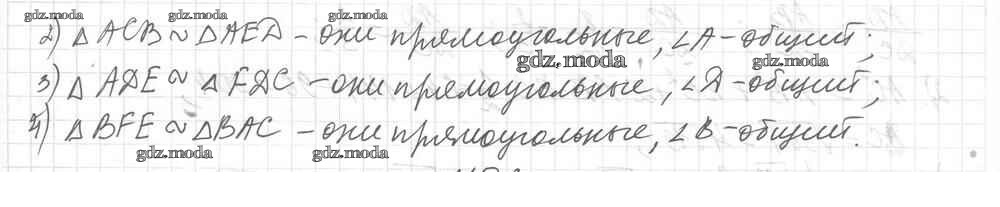 gdz.moda gdz.moda gdz.moda
2) △ ACB ~ △ AED – они прямоугольные, ∠A – общий;
gdz.moda gdz.moda
3) △ ADE ~ △ FDC – они прямоугольные, ∠D – общий;
4) △ BFE ~ △ BAC – они прямоугольные, ∠B – общий.
gdz.moda gdz.moda